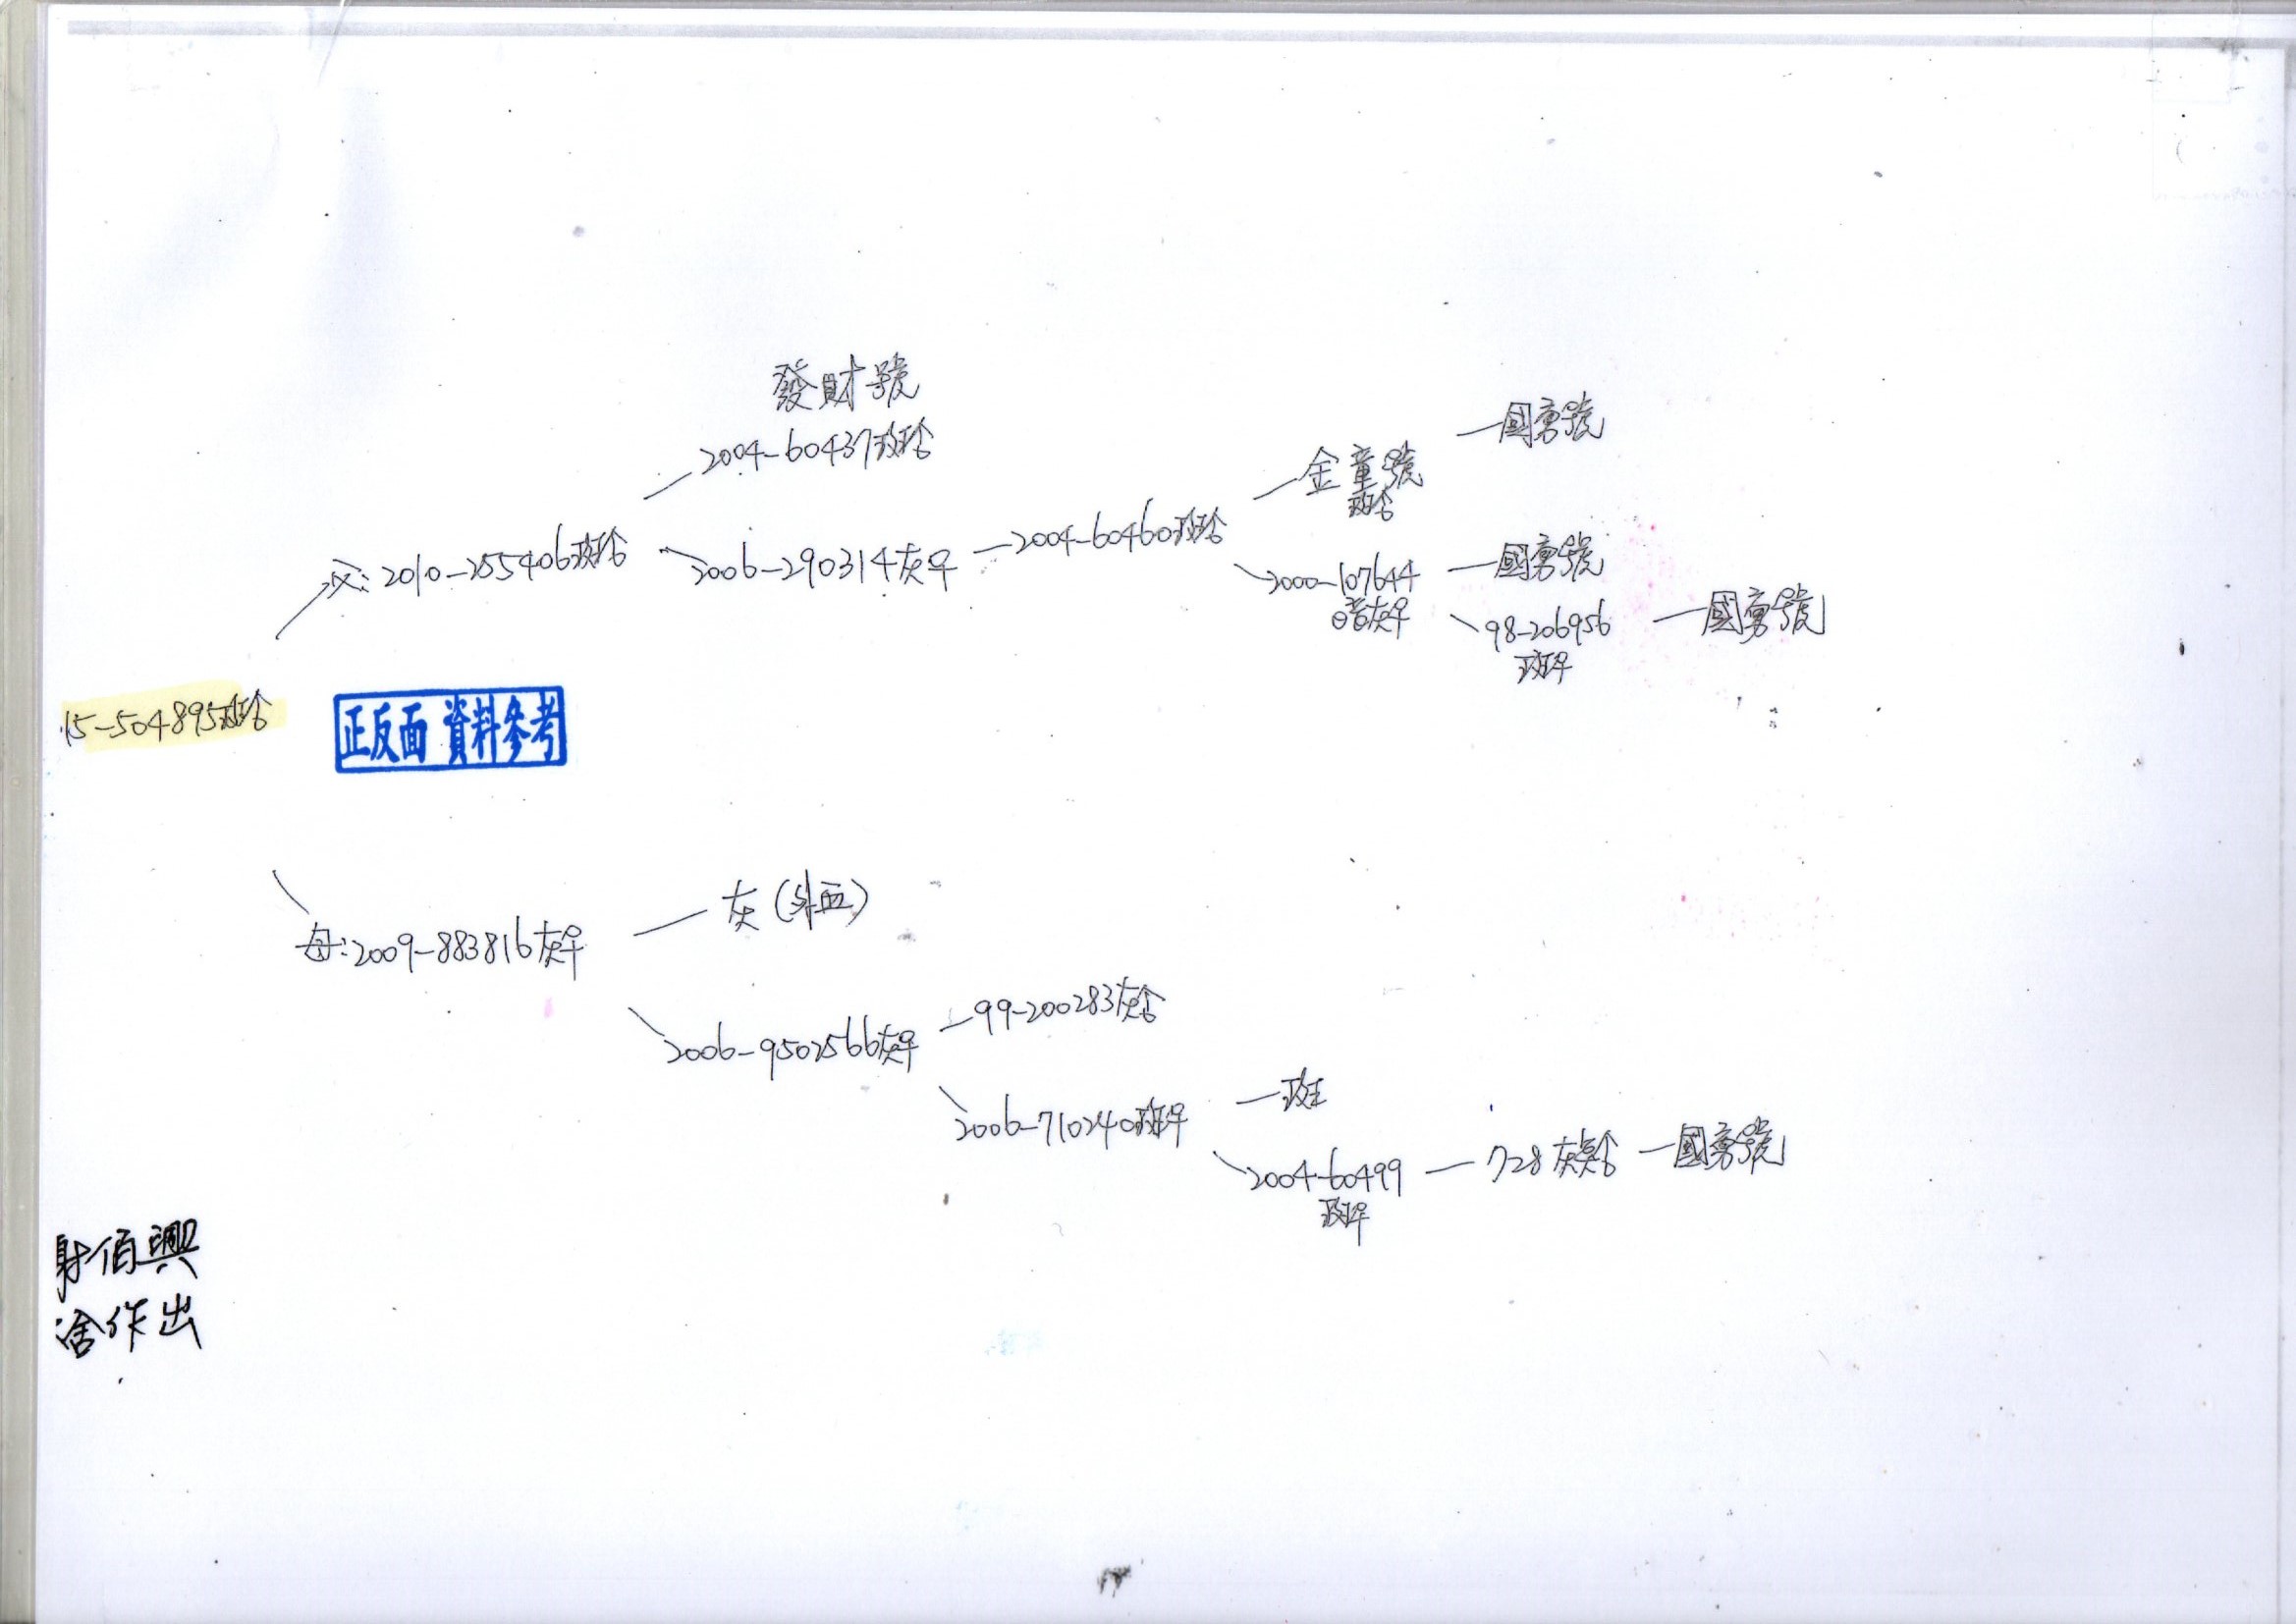 發財號
2004-60437斑♂
國勇號
金童號
斑♂
父:2010-255406斑♂
2006-290314灰♀
2004-60460斑♂
2000-107644
暗灰♀
國勇號
98-206956
斑♀
國勇號
15-504895斑♂
正反面 資料參考
母:2009-883816灰♀
灰(外血)
2006-9502566灰♀
99-200283灰♂
2006-710240斑♀
斑
2004-60499
斑♀
728灰
國勇號
佰興
舍作出